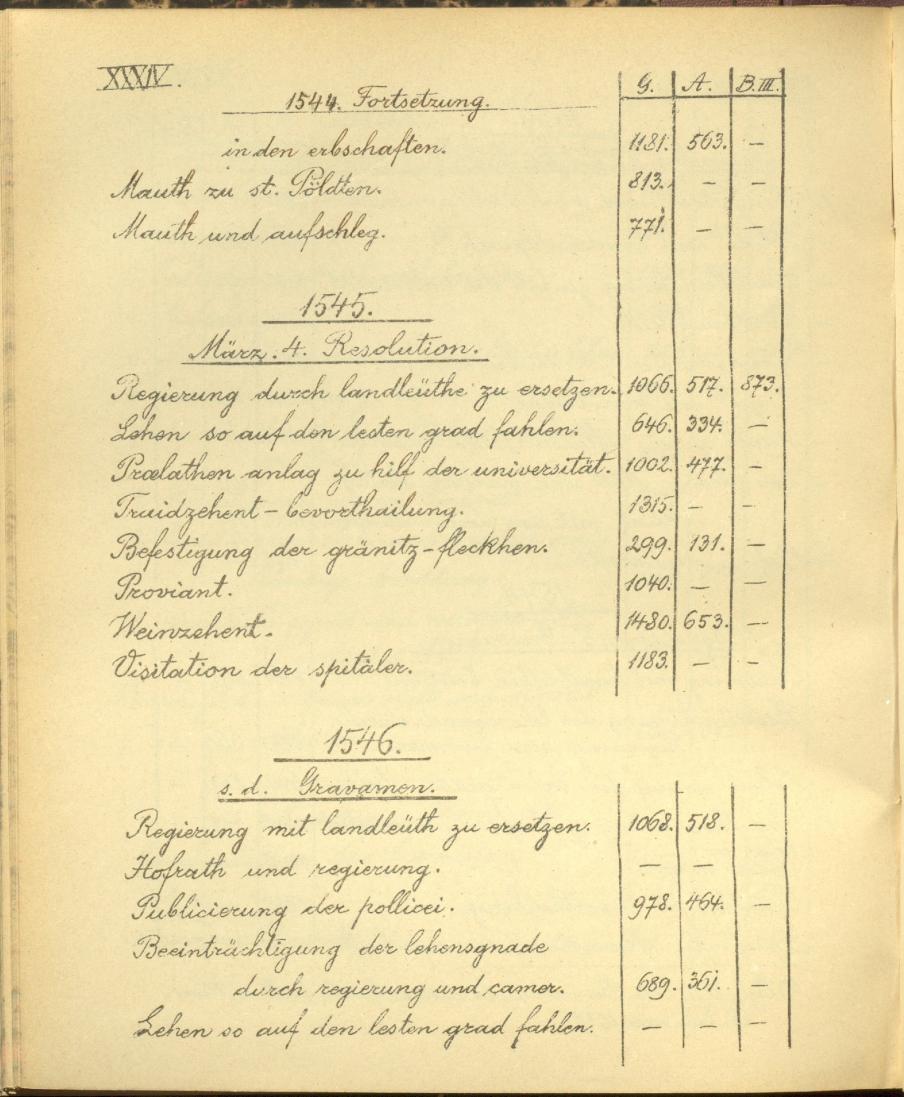 XXXIV.
G. A. B.III.
1544. Fortsetzung.
in den erbschaften. 1181. 563. —
Mauth zu st. Pöldten. 813. — —
Mauth und aufschleg. 771. — —
1545.
März. 4. Resolution.
Regierung durch landleüthe zu ersetzen. 1066. 517. 873.
Lehen so auf den lesten grad fahlen. 646. 334. —
Prælathen anlag zu hilf der universität. 1002. 477. —
Traidzehent – bevorthailung. 1315. — —
Befestigung der gränitz – fleckhen. 299. 131. —
Proviant. 1040. — —
Weinzehent. 1480. 653. —
Visitation der spitäler. 1183. — —
1546.
s. d. Gravamen.
Regierung mit landleüth zu ersetzen. 1068. 518. —
Hofrath und regierung. — —
Publicierung der pollicei. 978. 464. —
Beeinträchtigung der lehensgnade
durch regierung und camer. 689. 361. —
Lehen so auf den lesten grad fahlen. — — —